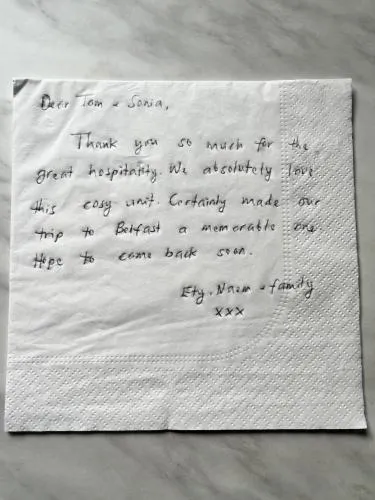 Dear Tom & Sonia,
Thank you so much for the
great hospitality. We absolutely love
this cosy unit. Certainly made our
trip to Belfast a memorable one
Hope to come back soon.
Ety, Naem & family
xxx